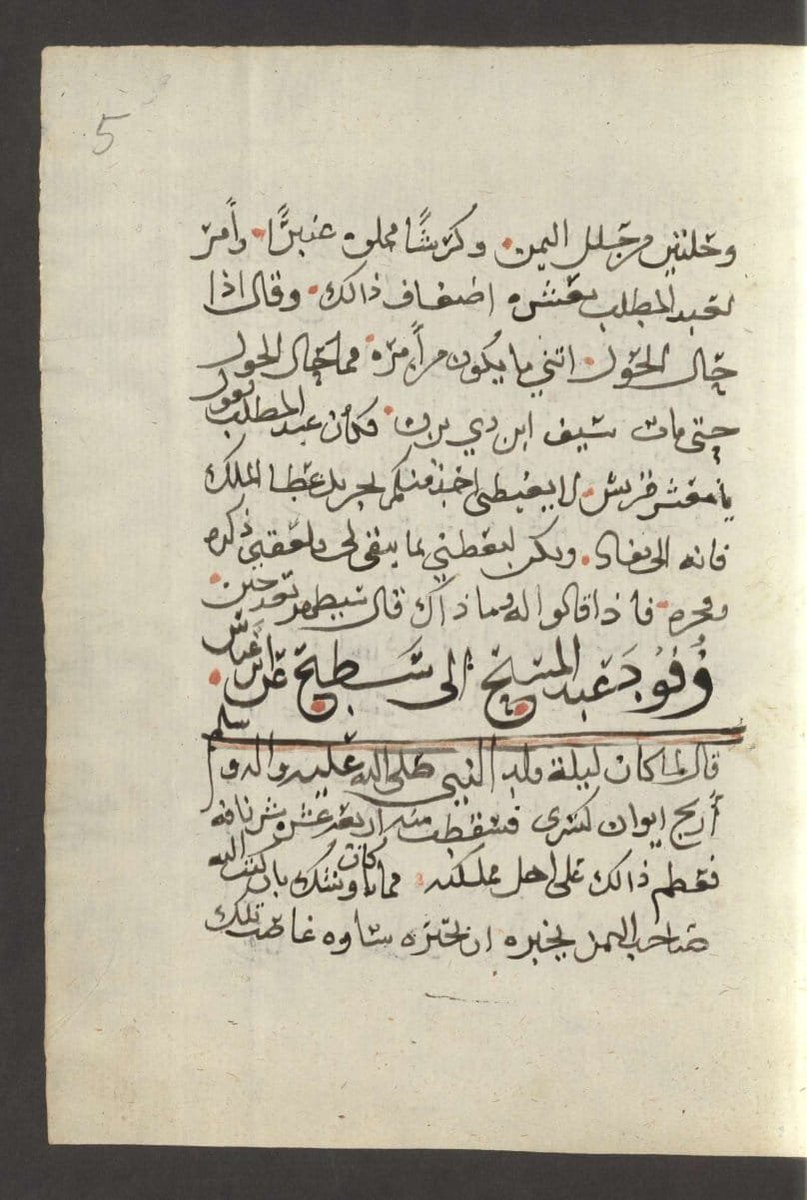 5
وحلتين من حلل اليمن وكرشًا مملوه عنبرًا وأمر
لعبد المطلب بعشره اضعاف ذالك وقال اذا
حال الحول اتني ما يكون من أمره فما حال الحول
حتى مات سيف ابن دي يزن فكان عبد المطلب يقول
يا معشر قريش لا يغبطني احد منكم بجزيل عطا الملك
فانه الى نفاد ولكن ليغبطني بما يبقى لي ولعقبي ذكره
وفخره فاذا قالوا له وما ذاك قال سيظهر بعد حين
وُفُود عبد المسيح الى سَطيح عن ابن عباس
قال لما كان ليلة ولد النبي صلى الله عليه واله وسلم
أرتج ايوان كسرى فسقطت منه اربعه عشره شرافه
فعظم ذالك على اهل مملكته فما كان وشك بان كتب اليه
صاحب اليمن يخبره ان بحيره ساوه غاضت تلك